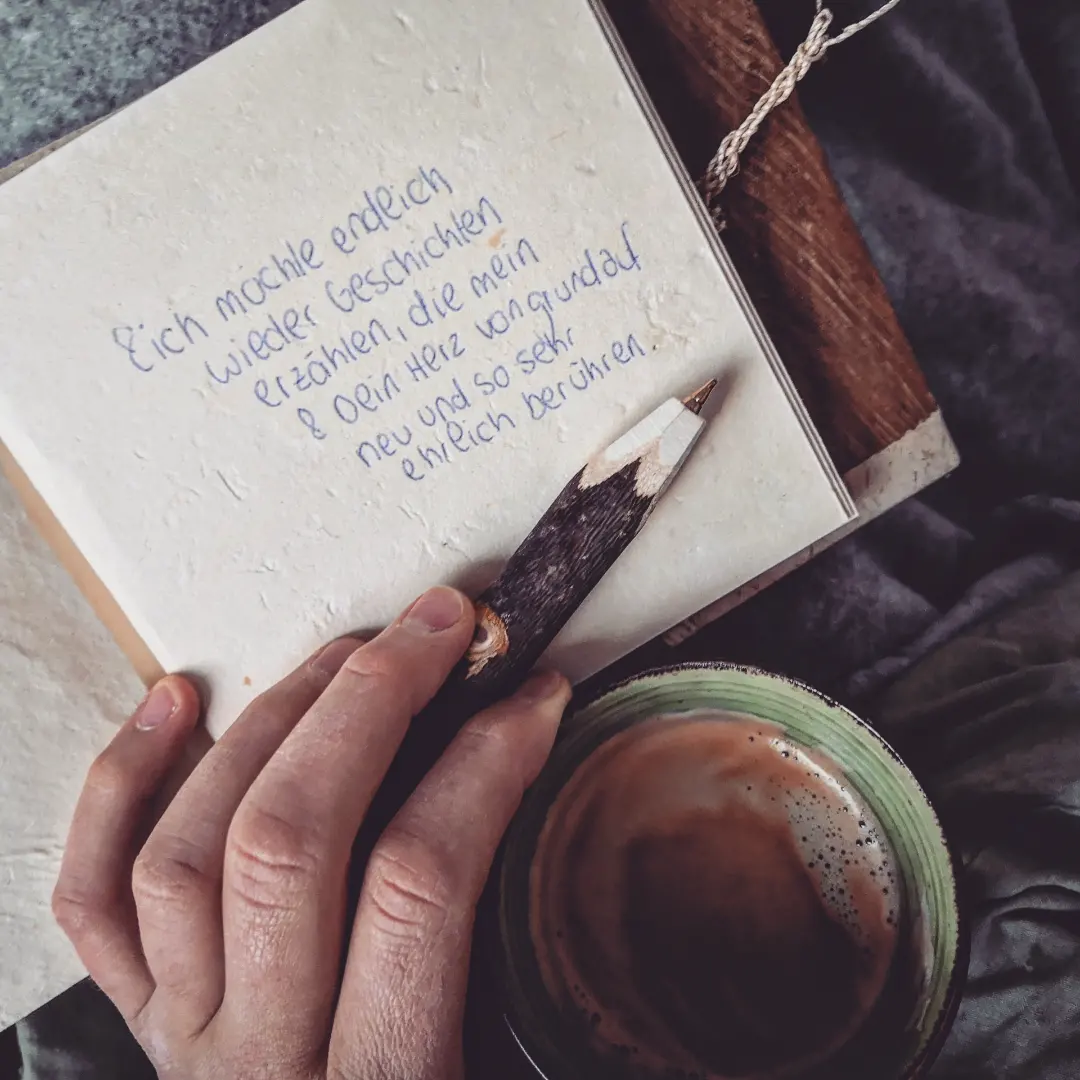 & ich möchte endlich
wieder Geschichten
erzählen, die mein
& Dein Herz von grund auf
neu und so sehr
ehrlich berühren.